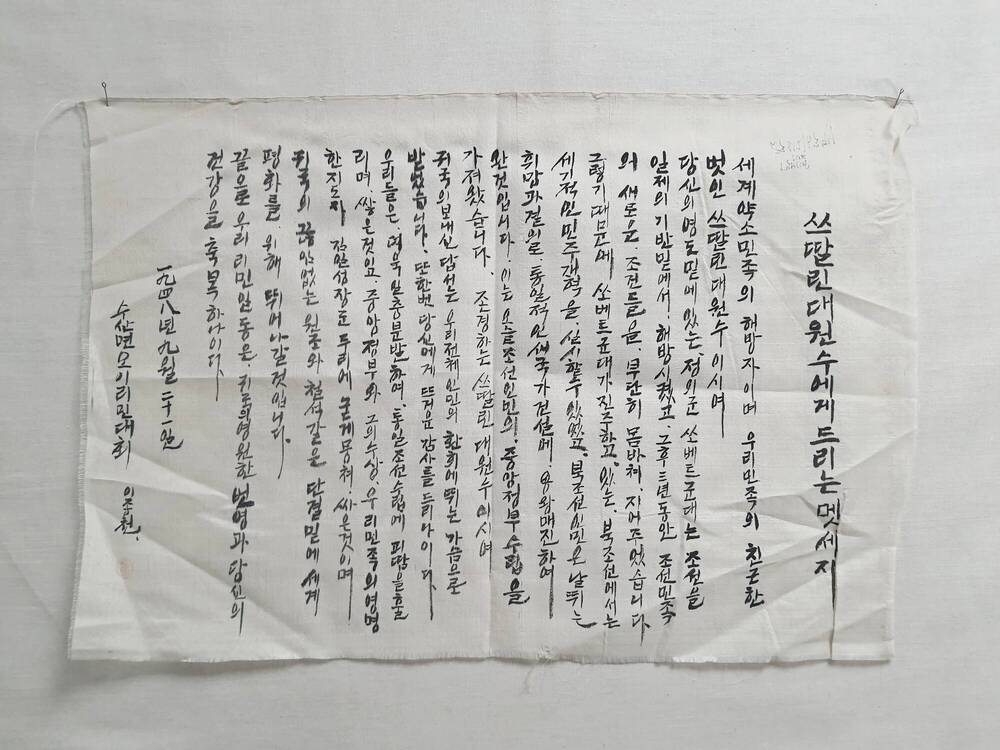 쓰딸린대원수에게 드리는 멧세지
세계약소민족의 해방자이며 우리민족의 친근한
벗인 쓰딸린대원수이시여
당신의 영도밑에 있는, 정의군 쏘베트군대는 조선을
일제의 기반밑에서, 해방시켰고, 그후 三년동안 조선민족
의 새로운, 조건들을, 부단히 몸바쳐, 지어주었습니다.
그렇기 때문에 쏘베트군대가 진주하고, 있는, 북조선에서는
세기적인 민주개혁을, 실시할수있었고, 북조선인민은 날뛰는
희망과 결의로, 통일적인 새국가 건설에, 용왕매진하여
완것입니다. 이는 오늘 조선인민의, 중앙정부수립을
가져왔습니다. 존경하는 쓰딸린 대원수이시여
귀국의 보내신 답서는 우리전체인민의 환희에 뛰는 가슴으로
받었습니다. 또한번 당신에게 뜨거운 감사를 드리나이다.
우리들은, 더욱 일층분발하여, 통일조선수립에 피땀을 흘
리며, 쌓은것이고 중앙정부와 그의 수상, 우리민족의 영명
한 지도자 김일성장군 두리에 굳게 뭉쳐 싸은것이며
귀국의 끊임없는 원조와 철석같은 단결밑에 세계
평화를 위해 뛰어나갈것입니다.
끝으로 우리 리민일동은, 귀국의 영원한 번영과 당신의
건강을 축복하나이다.
一九四八년 九월 二十一일
수산면오리리민대회